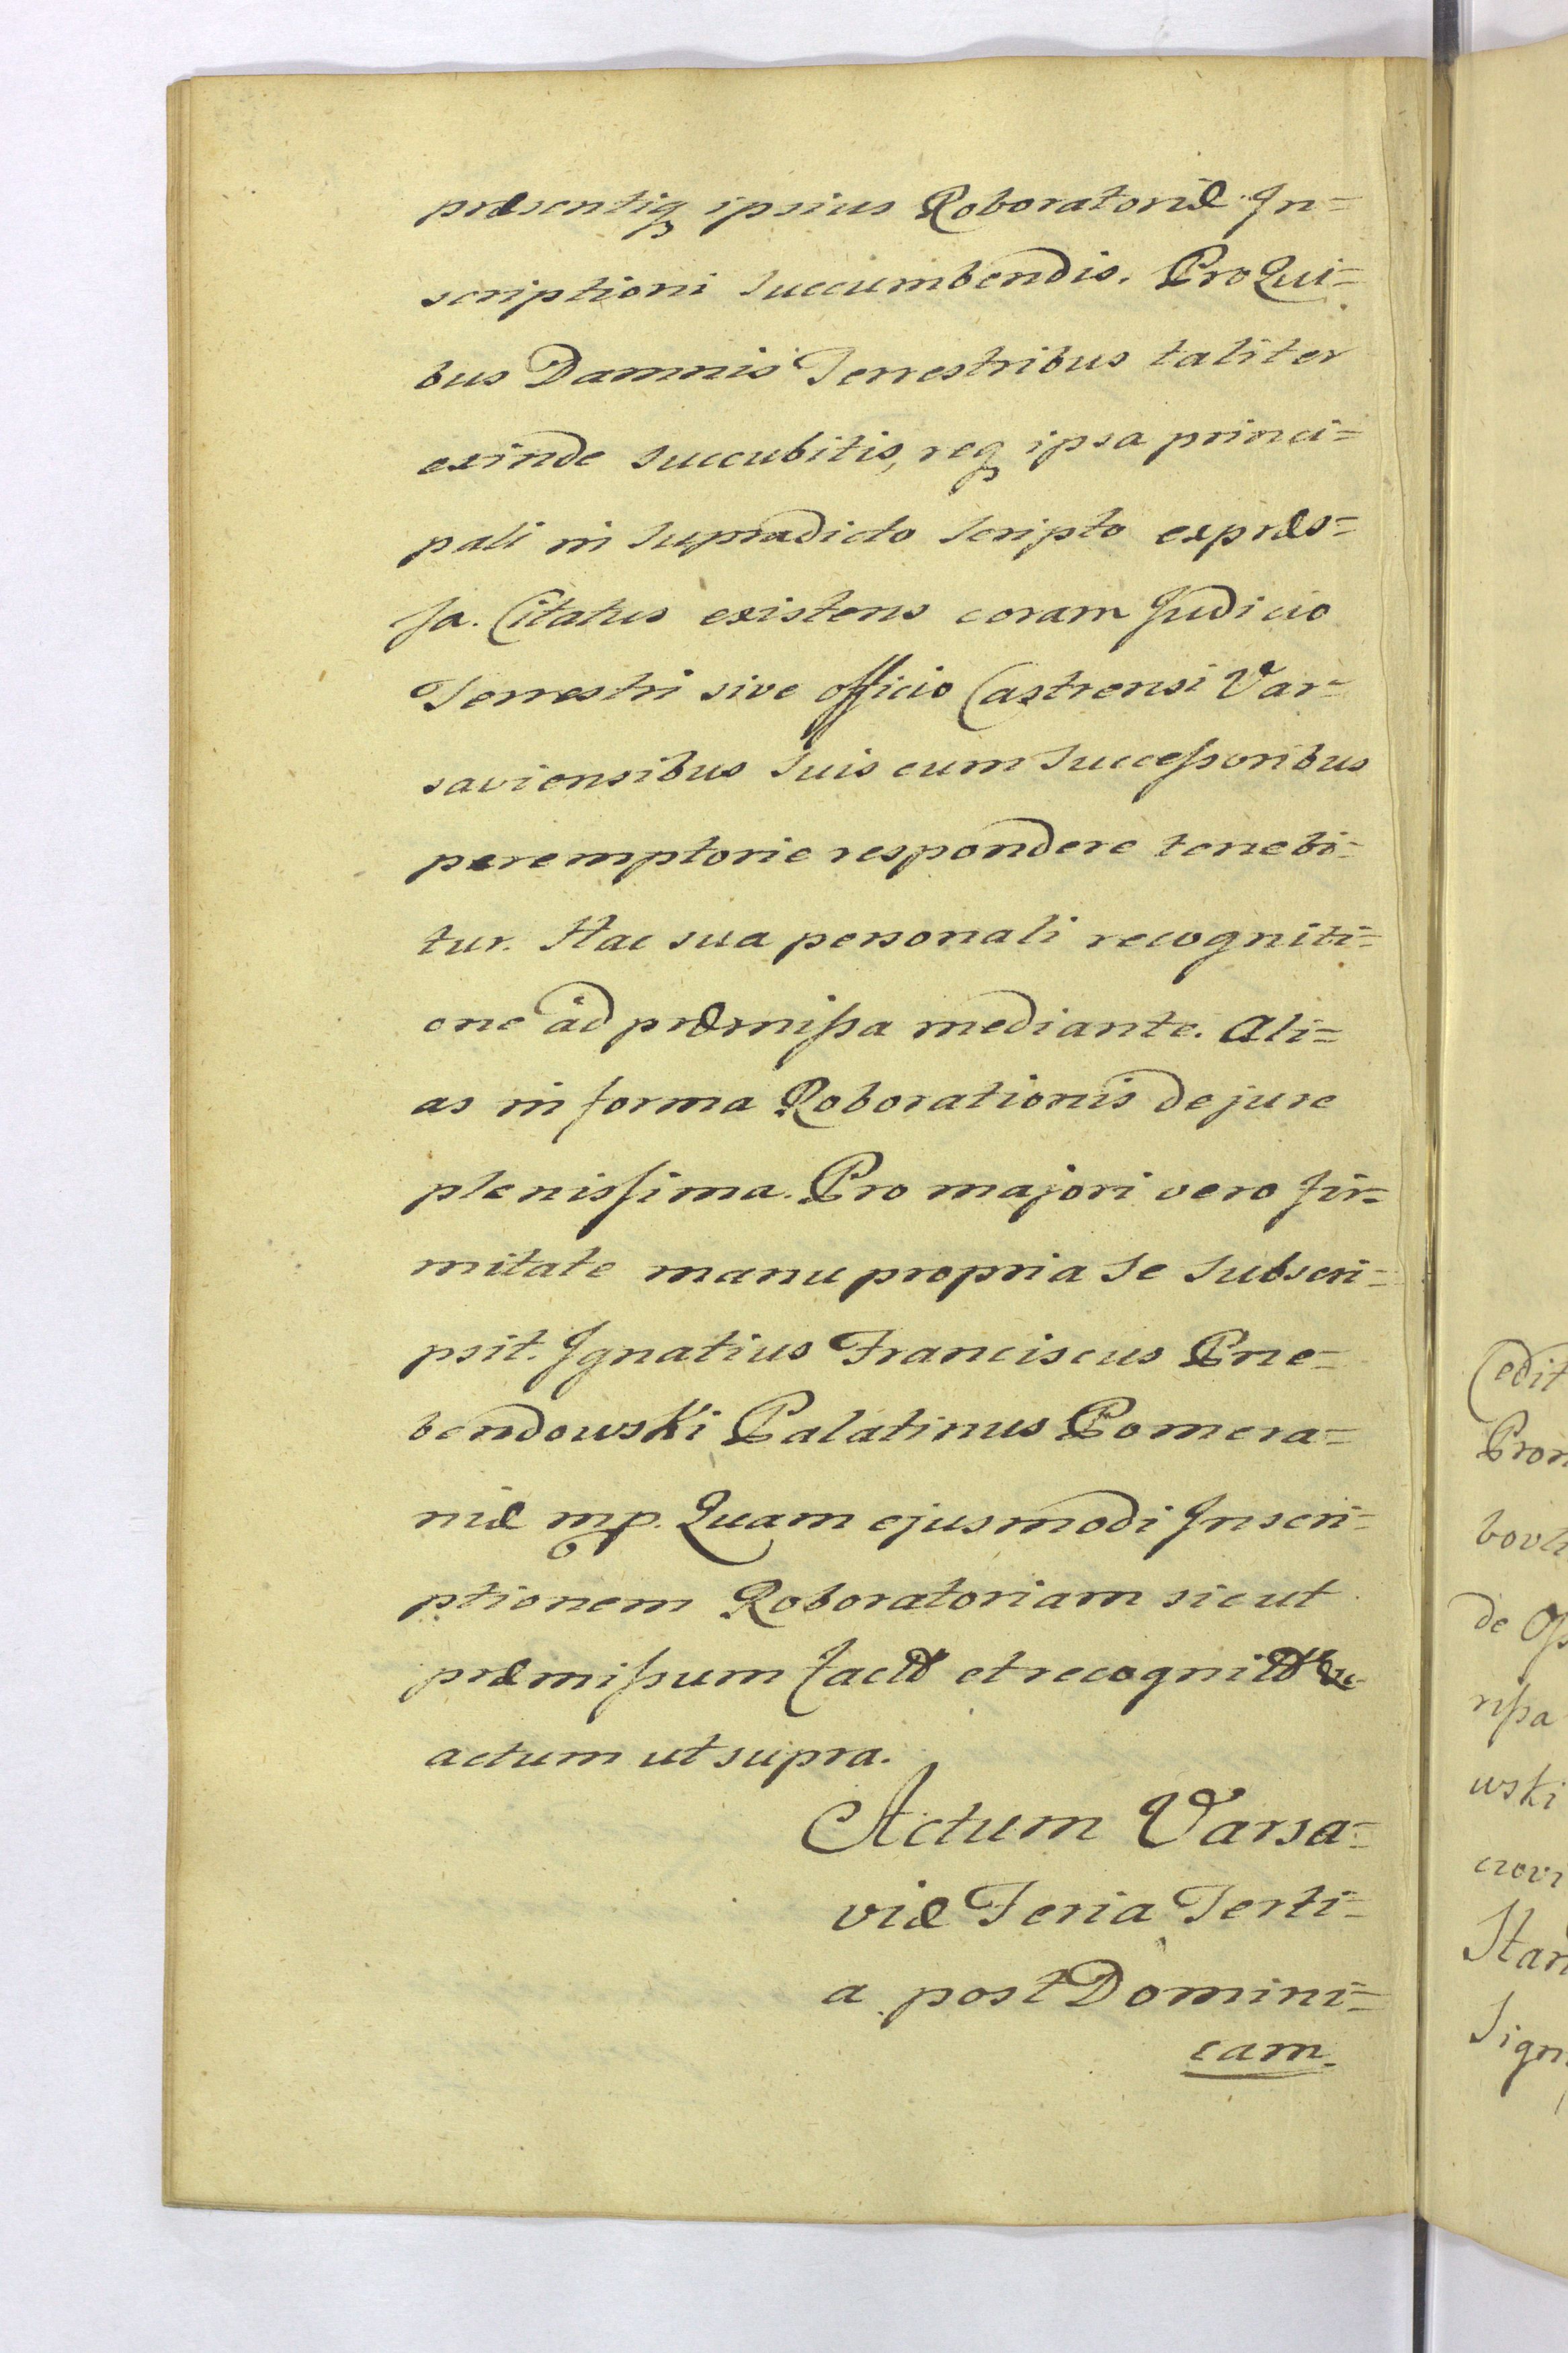 præsentiq ipsius Roboratoriæ In=
scriptioni succumbendis. Pro Qui=
bus Damnis Terrestribus taliter
exinde succubitis, req ipsa princi=
pali in supradicto scripto expræs=
sa. Citatus existens coram Judicio
Terrestri sive officio Castrensi Var=
saviensibus suis cum successoribus
peremptorie respondere tenebi=
tur. Hac sua personali recogniti=
one ad præmissa mediante. Ali=
as in forma Roborationis de jure
plenissima. Pro majori vero fir=
mitate manu propria se subscri=
psit. Ignatius Franciscus Prze=
bendowski Palatinus Pomera=
niæ mp. Quam ejusmodi Inscri=
ptionem Roboratoriam sicut
præmissum et
actum ut supra.
Actum Varsa=
viæ Feria Terti=
a post Domini=
cam.
Cedit
Pron
bovli
de Op
rissa
wski
crovi
Stan
Sign